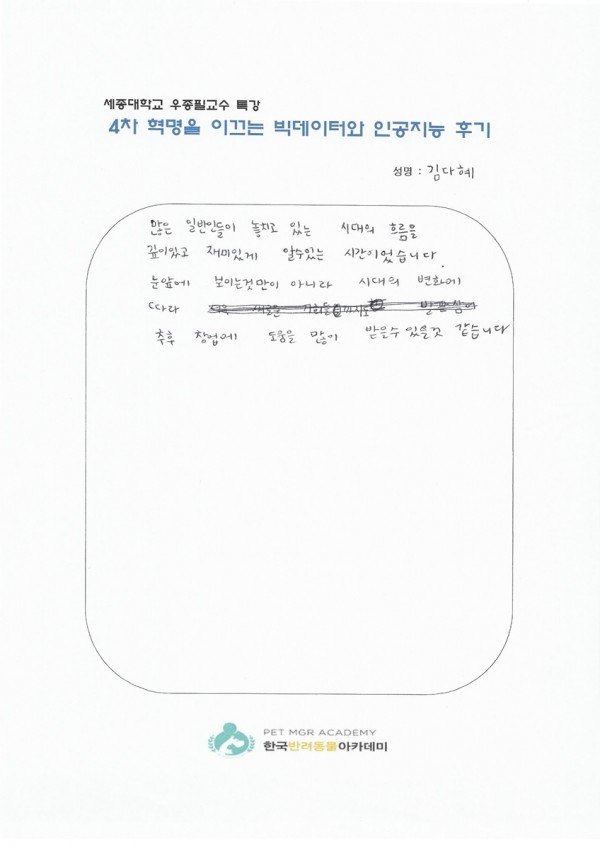 세종대학교 우종필교수 특강
4차 혁명을 이끄는 빅데이터와 인공지능 후기
성명 : 김다혜
많은 일반인들이 놓치고 있는 시대의 흐름을
깊이있고 재미있게 알수있는 시간이었습니다.
눈앞에 보이는것만이 아니라 시대의 변화에
따라
추후 창업에 도움을 많이 받을수 있을것 같습니다
PET MGR ACADEMY
한국반려동물아카데미